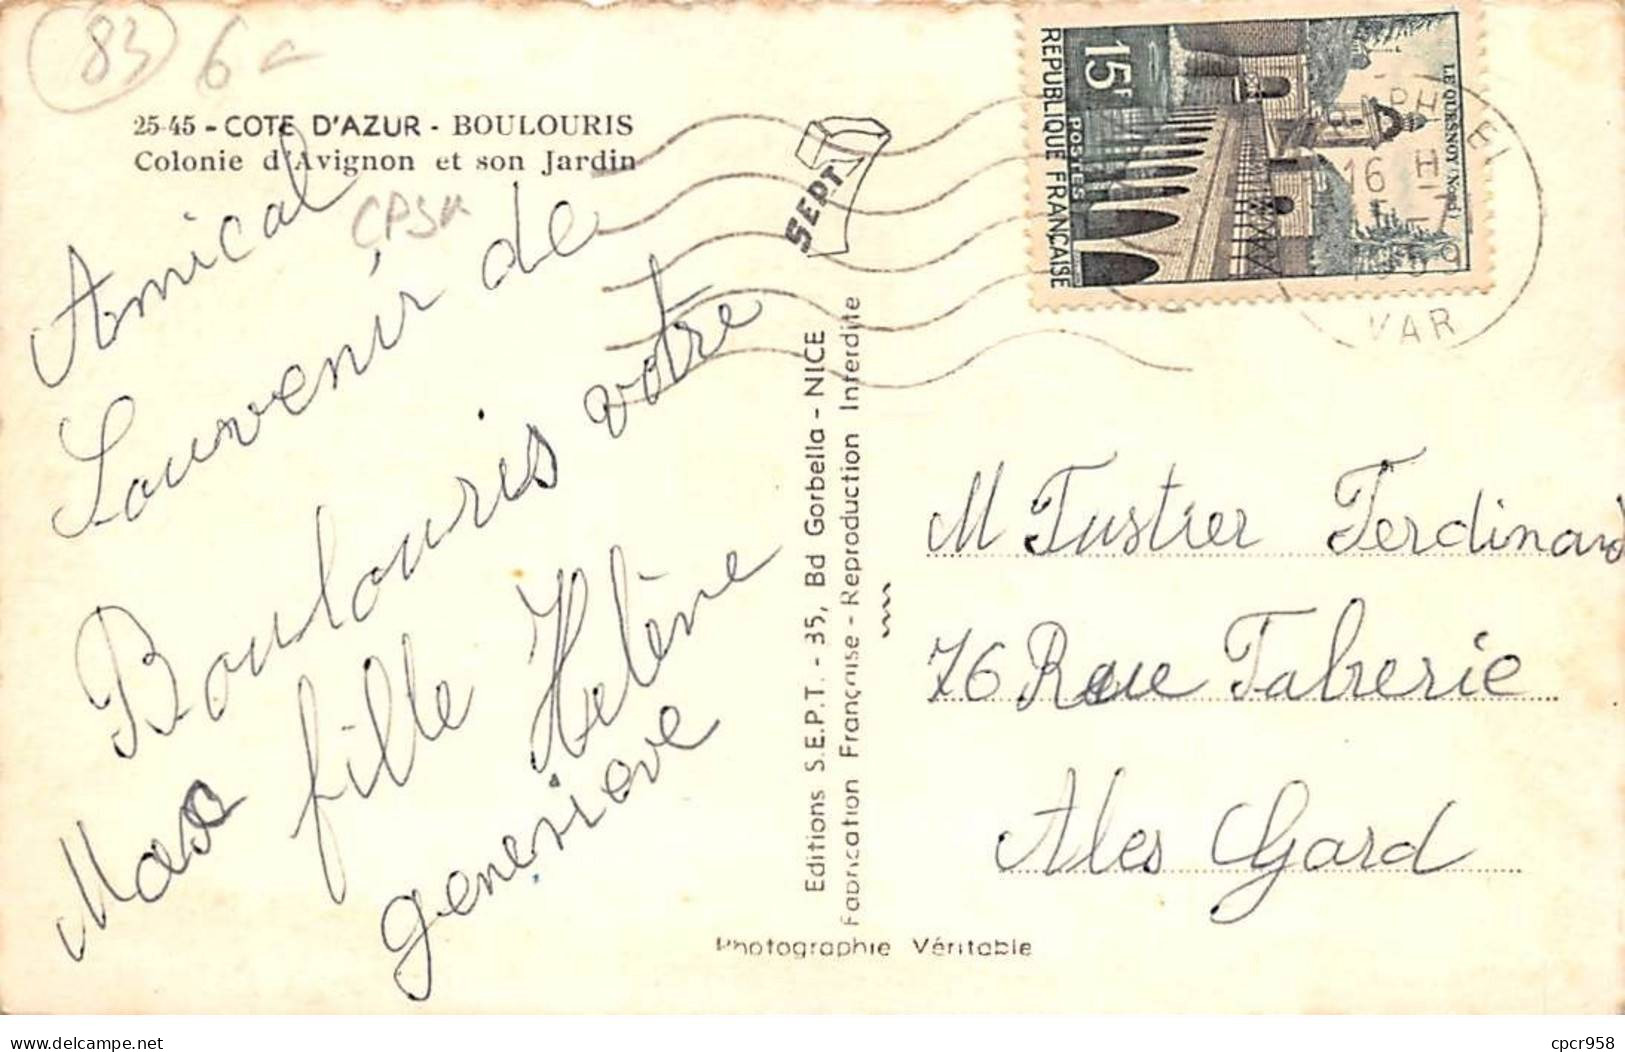 83 6
25-45 - COTE D'AZUR - BOULOURIS
Colonie d'Avignon et son Jardin
CPSM
Amical
Souvenir de
Boulouris votre
fille Hélène
genevieve
SEPT
Editions S.E.P.T. - 35, Bd Gorbella - NICE
Fabrication Française - Reproduction Interdite
Photographie Véritable
15F
POSTES
REPUBLIQUE FRANÇAISE
LE QUESNOY (Nord)
16 H
VAR
M Tustier Ferdinand
76 Rue Taberie
Ales Gard
delcampe.net
cpcr958